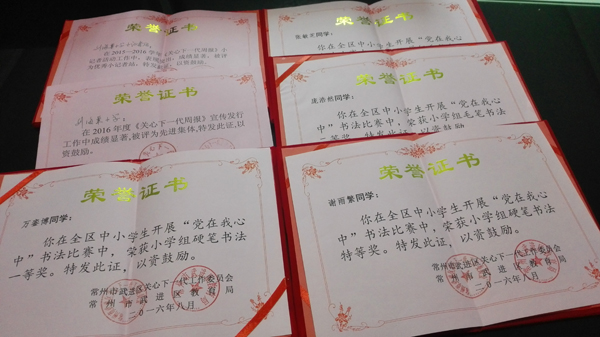 荣誉证书
在2015-2016学年《关心下一代周报》小
荣誉证书
在2016年度《关心下一代周报》宣传发行
工作中成绩显著,被评为先进集体,特发此证,以
资鼓励。
荣誉证书
同学:
你在全区中小学生开展“党在我心
荣誉证书
同学:
你在全区中小学生开展“党在我心
中”书法比赛中,荣获小学组毛笔书法
等奖。特发此证,以资鼓励。
荣誉证书
同学:
你在全区中小学生开展“党在我心
中”书法比赛中,荣获小学组硬笔书法
一等奖。特发此证,以资鼓励。
常州市武进区关心下一代工作委员会
常州市武进区教育局
二〇一六年八月
荣誉证书
谢雨繁同学:
你在全区中小学生开展“党在我心
中”书法比赛中,荣获小学组硬笔书法
特等奖。特发此证,以资鼓励。
常州市武进区关心下一代工作委员会
常州市武进区教育局
二〇一六年八月